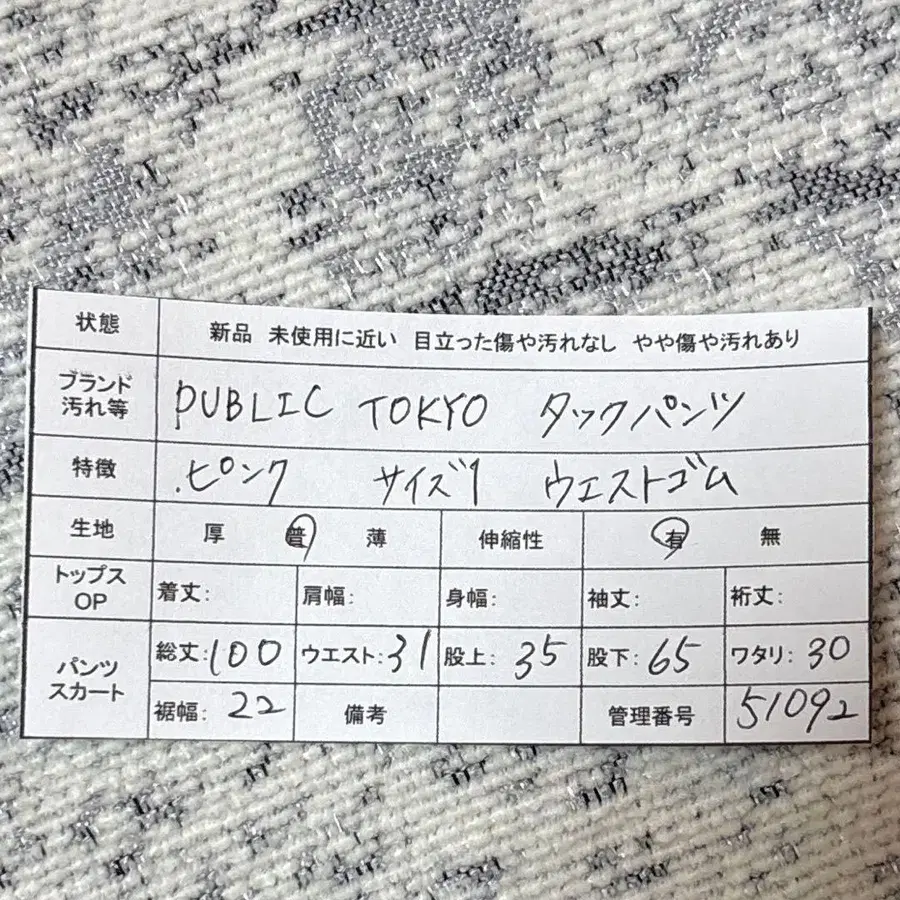 状態 新品 未使用に近い 目立った傷や汚れなし やや傷や汚れあり
ブランド
汚れ等 PUBLIC TOKYO タックパンツ
特徴 ピンク サイズ1 ウエストゴム
生地 厚 普 薄 伸縮性 有 無
トップス
OP 着丈: 肩幅: 身幅: 袖丈: 裄丈:
パンツ
スカート 総丈:100 ウエスト:31 股上:35 股下:65 ワタリ:30
裾幅:22 備考 管理番号 51092